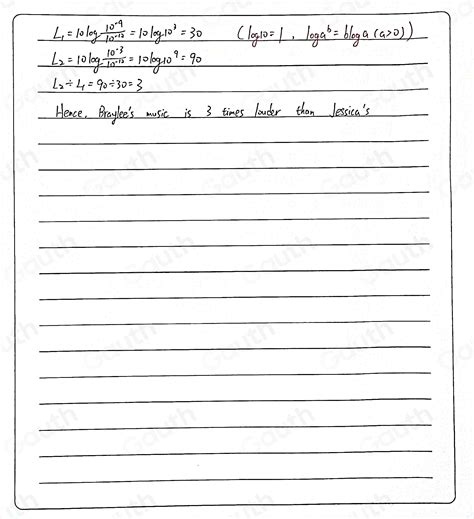 L₁ = 10 log 10⁻⁹/10⁻¹² = 10 log 10³ = 30 (log10 = 1, logaᵇ = bloga (a>0))
L₂ = 10 log 10⁻³/10⁻¹² = 10 log 10⁹ = 90
L₂ ÷ L₁ = 90 ÷ 30 = 3
Hence, Braylee's music is 3 times louder than Jessica's